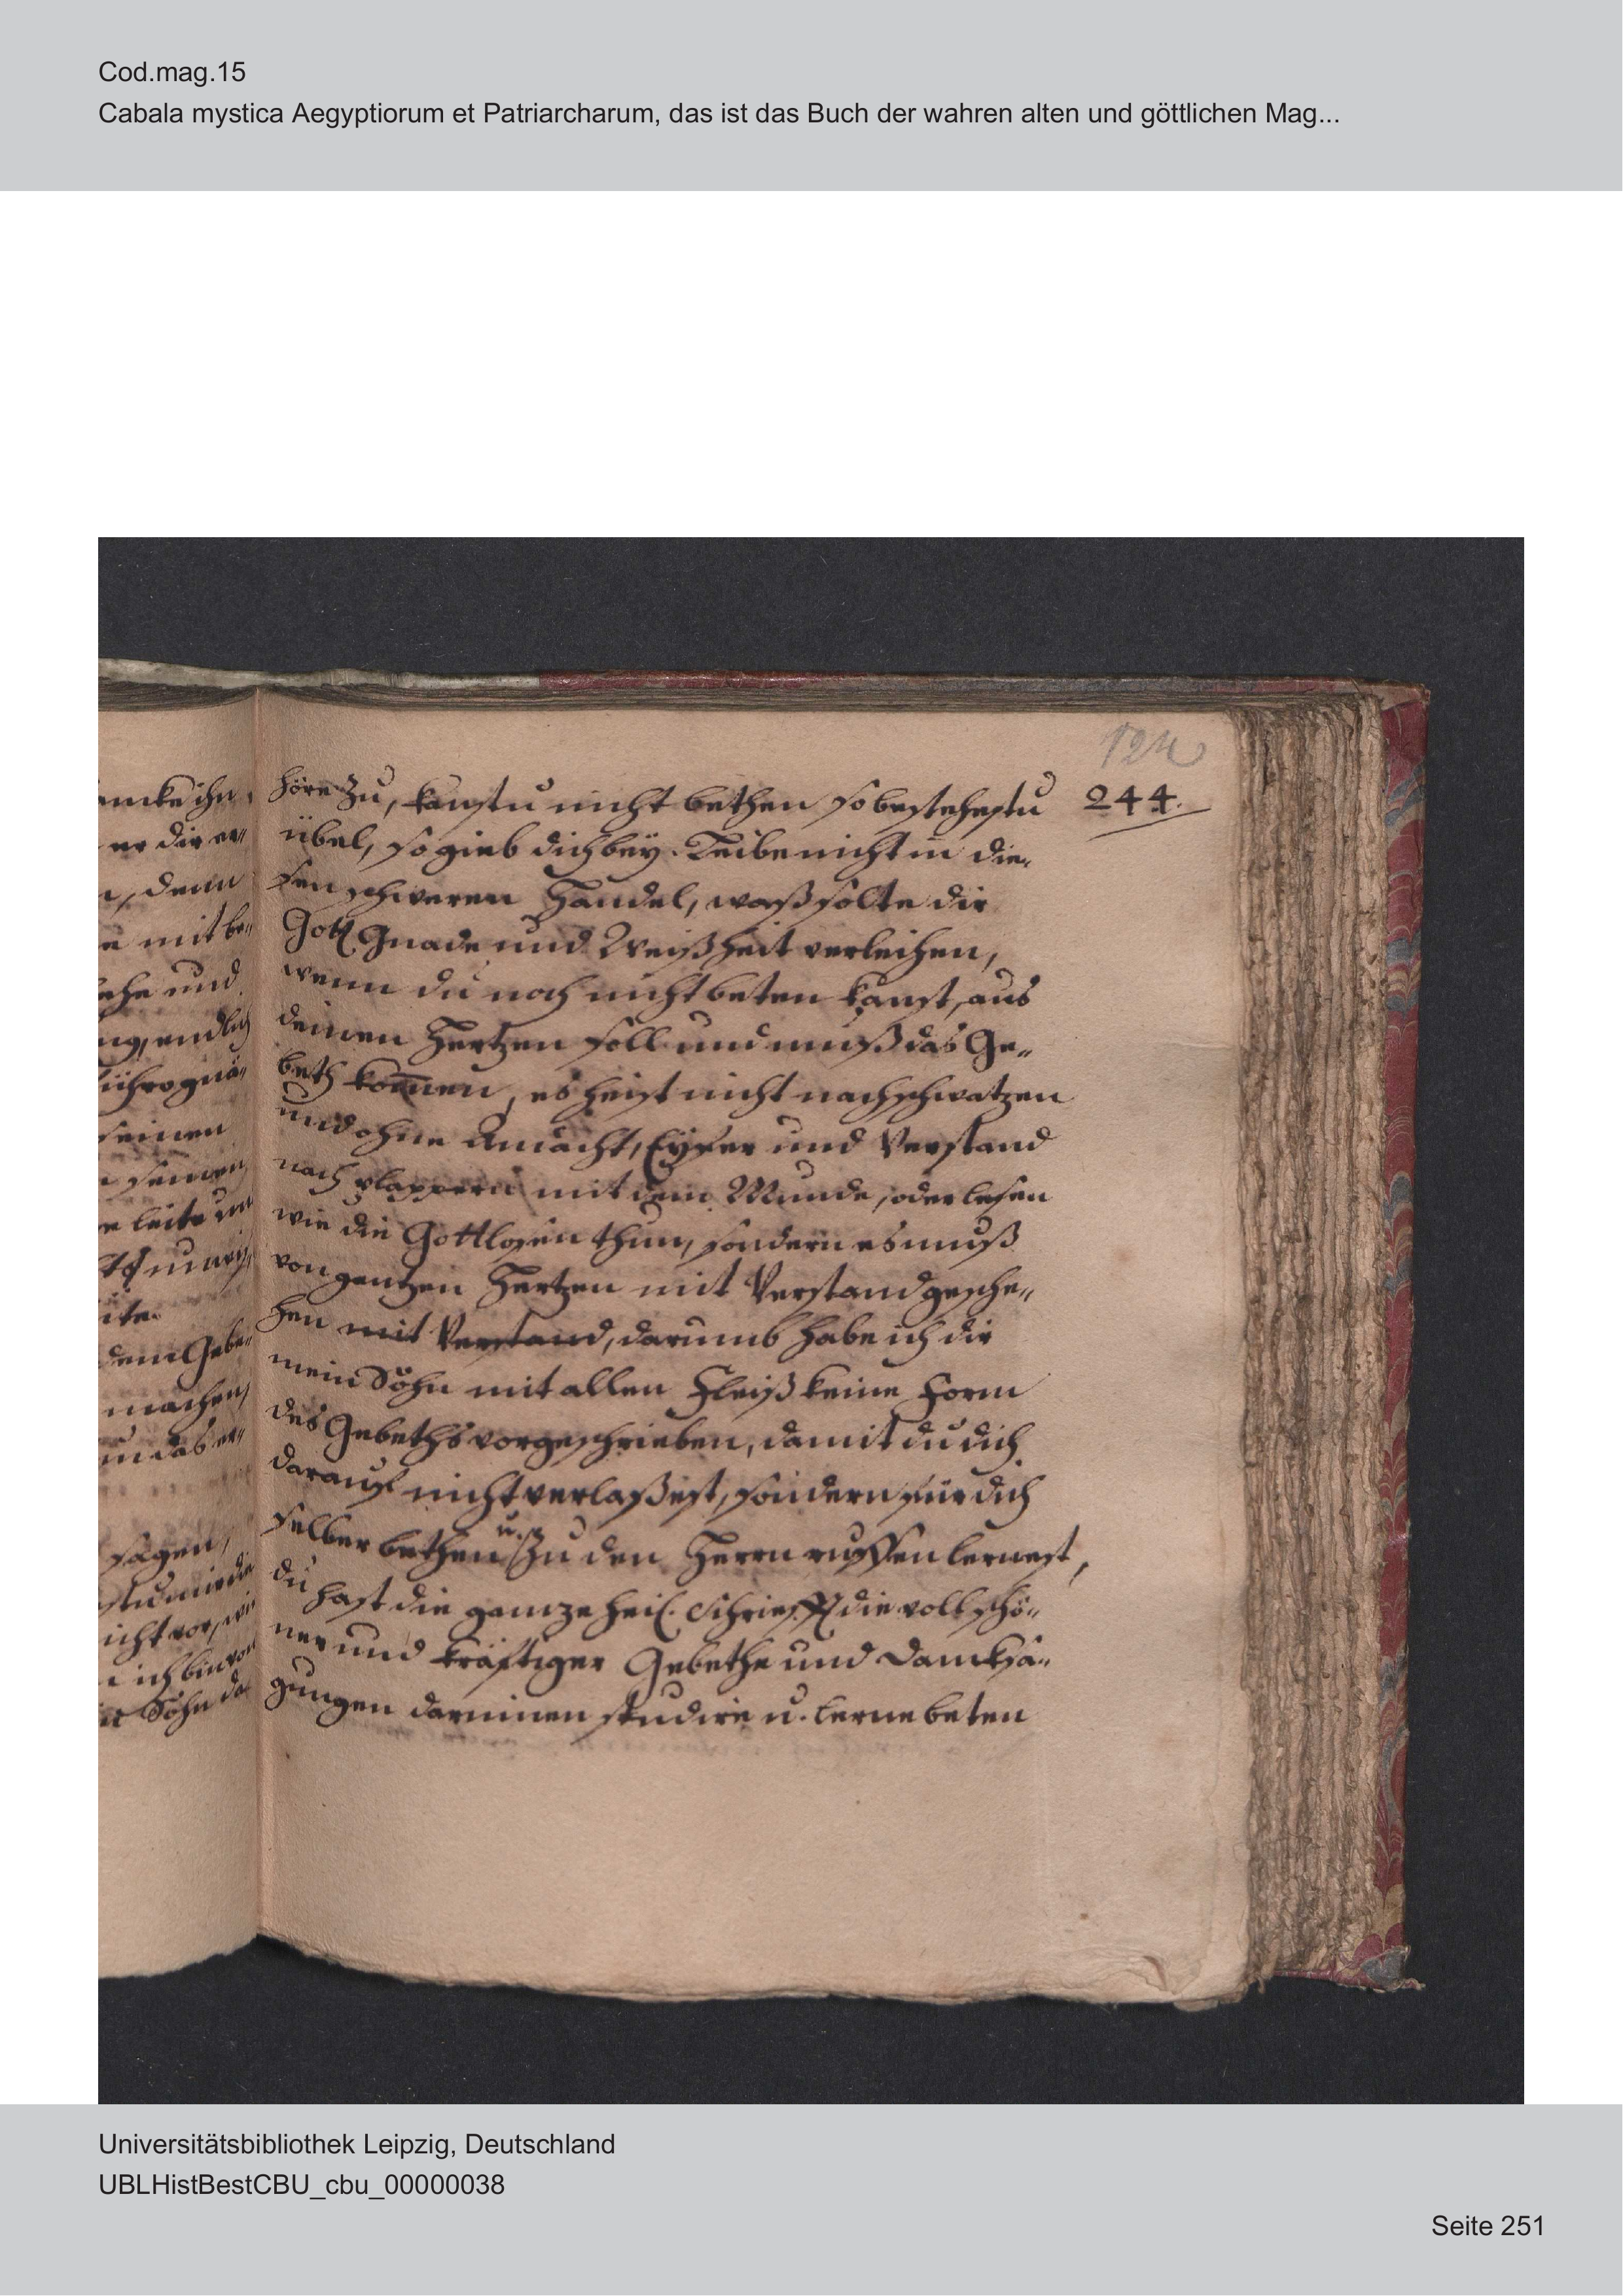 Cod.mag.15
Cabala mystica Aegyptiorum et Patriarcharum, das ist das Buch der wahren alten und göttlichen Mag...
244.
höre zu, kanstu nicht bethen so bestehestu
übel, so gieb dich bey. Leibe nicht in die-
sen schweren Handel, waß solte dir
Gott Gnade und Weißheit verleihen,
wenn du noch nicht beten kanst, aus
deinen Hertzen soll und muß das Ge-
beth kom̅en, es heist nicht nachschwatzen
und ohne Andacht, Eyfer und Verstand
nach plappern mit dem Munde, oder lesen
wie die Gottlosen thun, sondern es muß
von gantzen Hertzen mit Verstand gesche-
hen mit Verstand, darumb habe ich dir
mein Sohn mit allen Fleiß keine Form
des Gebeths vorgeschrieben, damit du dich
darauf nicht verlaßest, sondern für dich
selber bethen u. zu den Herrn ruffen lernest,
du hast die gantze heil. Schrifft die voll schö-
ner und kräftiger Gebethe und Dancksa-
gungen darinnen studire u. lerne beten
Universitätsbibliothek Leipzig, Deutschland
UBLHistBestCBU_cbu_00000038
Seite 251